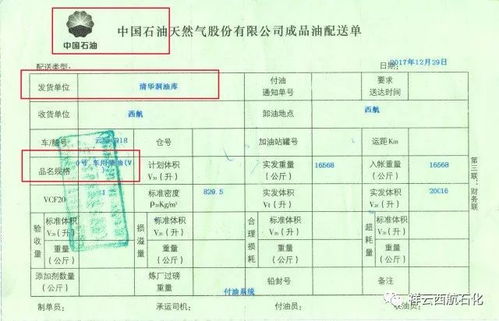 中国石油
中国石油天然气股份有限公司成品油配送单
配送类型: 日期: 2017年12月29日
发货单位 清华洞油库 付油通知单号 要求送达时间
收货单位 西航 卸油地点 西航
车/船号 仓号 加油站罐号 运距Km
品名规格 0号 车用柴油(V 计划体积V₂₀(升) 实发重量(公斤) 16568 入帐重量(公斤) 16568
VCF20 1 标准密度ρ₂₀Kg/m³ 829.5 实发体积Vt(升) 实发体积V₂₀(升)
验收量 标准体积V₂₀(升) 损溢量 标准体积V₂₀(升) 合理损耗 标准体积V₂₀(升) 超耗量 标准体积V₂₀(升)
重量(公斤) 重量(公斤) 重量(公斤) 重量(公斤)
添加剂数量(公斤) 炼厂过磅重量 铅封号 备注
付油系统
制单员: 承运司机: 付油员: 收油员:
第三联、财务联
祥云西航石化